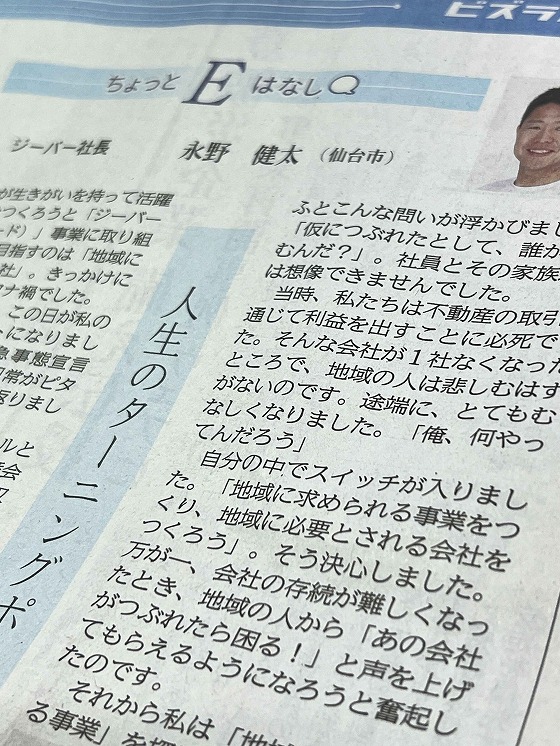 ビズラ
ちょっと E はなし
ジーバー社長
永野 健太（仙台市）
人生のターニングポ
が生きがいを持って活躍
つくろうと「ジーバー
ード）」事業に取り組
目指すのは「地域に
社」。きっかけに
ナ禍でした。
この日が私の
トになりまし
急事態宣言
日常がピタ
返りまし
ルと
会
ふとこんな問いが浮かびまし
「仮につぶれたとして、誰か
むんだ？」。社員とその家族
は想像できませんでした。
当時、私たちは不動産の取引
通じて利益を出すことに必死で
た。そんな会社が１社なくなった
ところで、地域の人は悲しむはず
がないのです。途端に、とてもむ
なしくなりました。「俺、何やっ
てんだろう」
自分の中でスイッチが入りまし
た。「地域に求められる事業をつ
くり、地域に必要とされる会社を
つくろう」。そう決心しました。
万が一、会社の存続が難しくなっ
たとき、地域の人から「あの会社
がつぶれたら困る！」と声を上げ
てもらえるようになろうと奮起し
たのです。
それから私は「地域
る事業」を